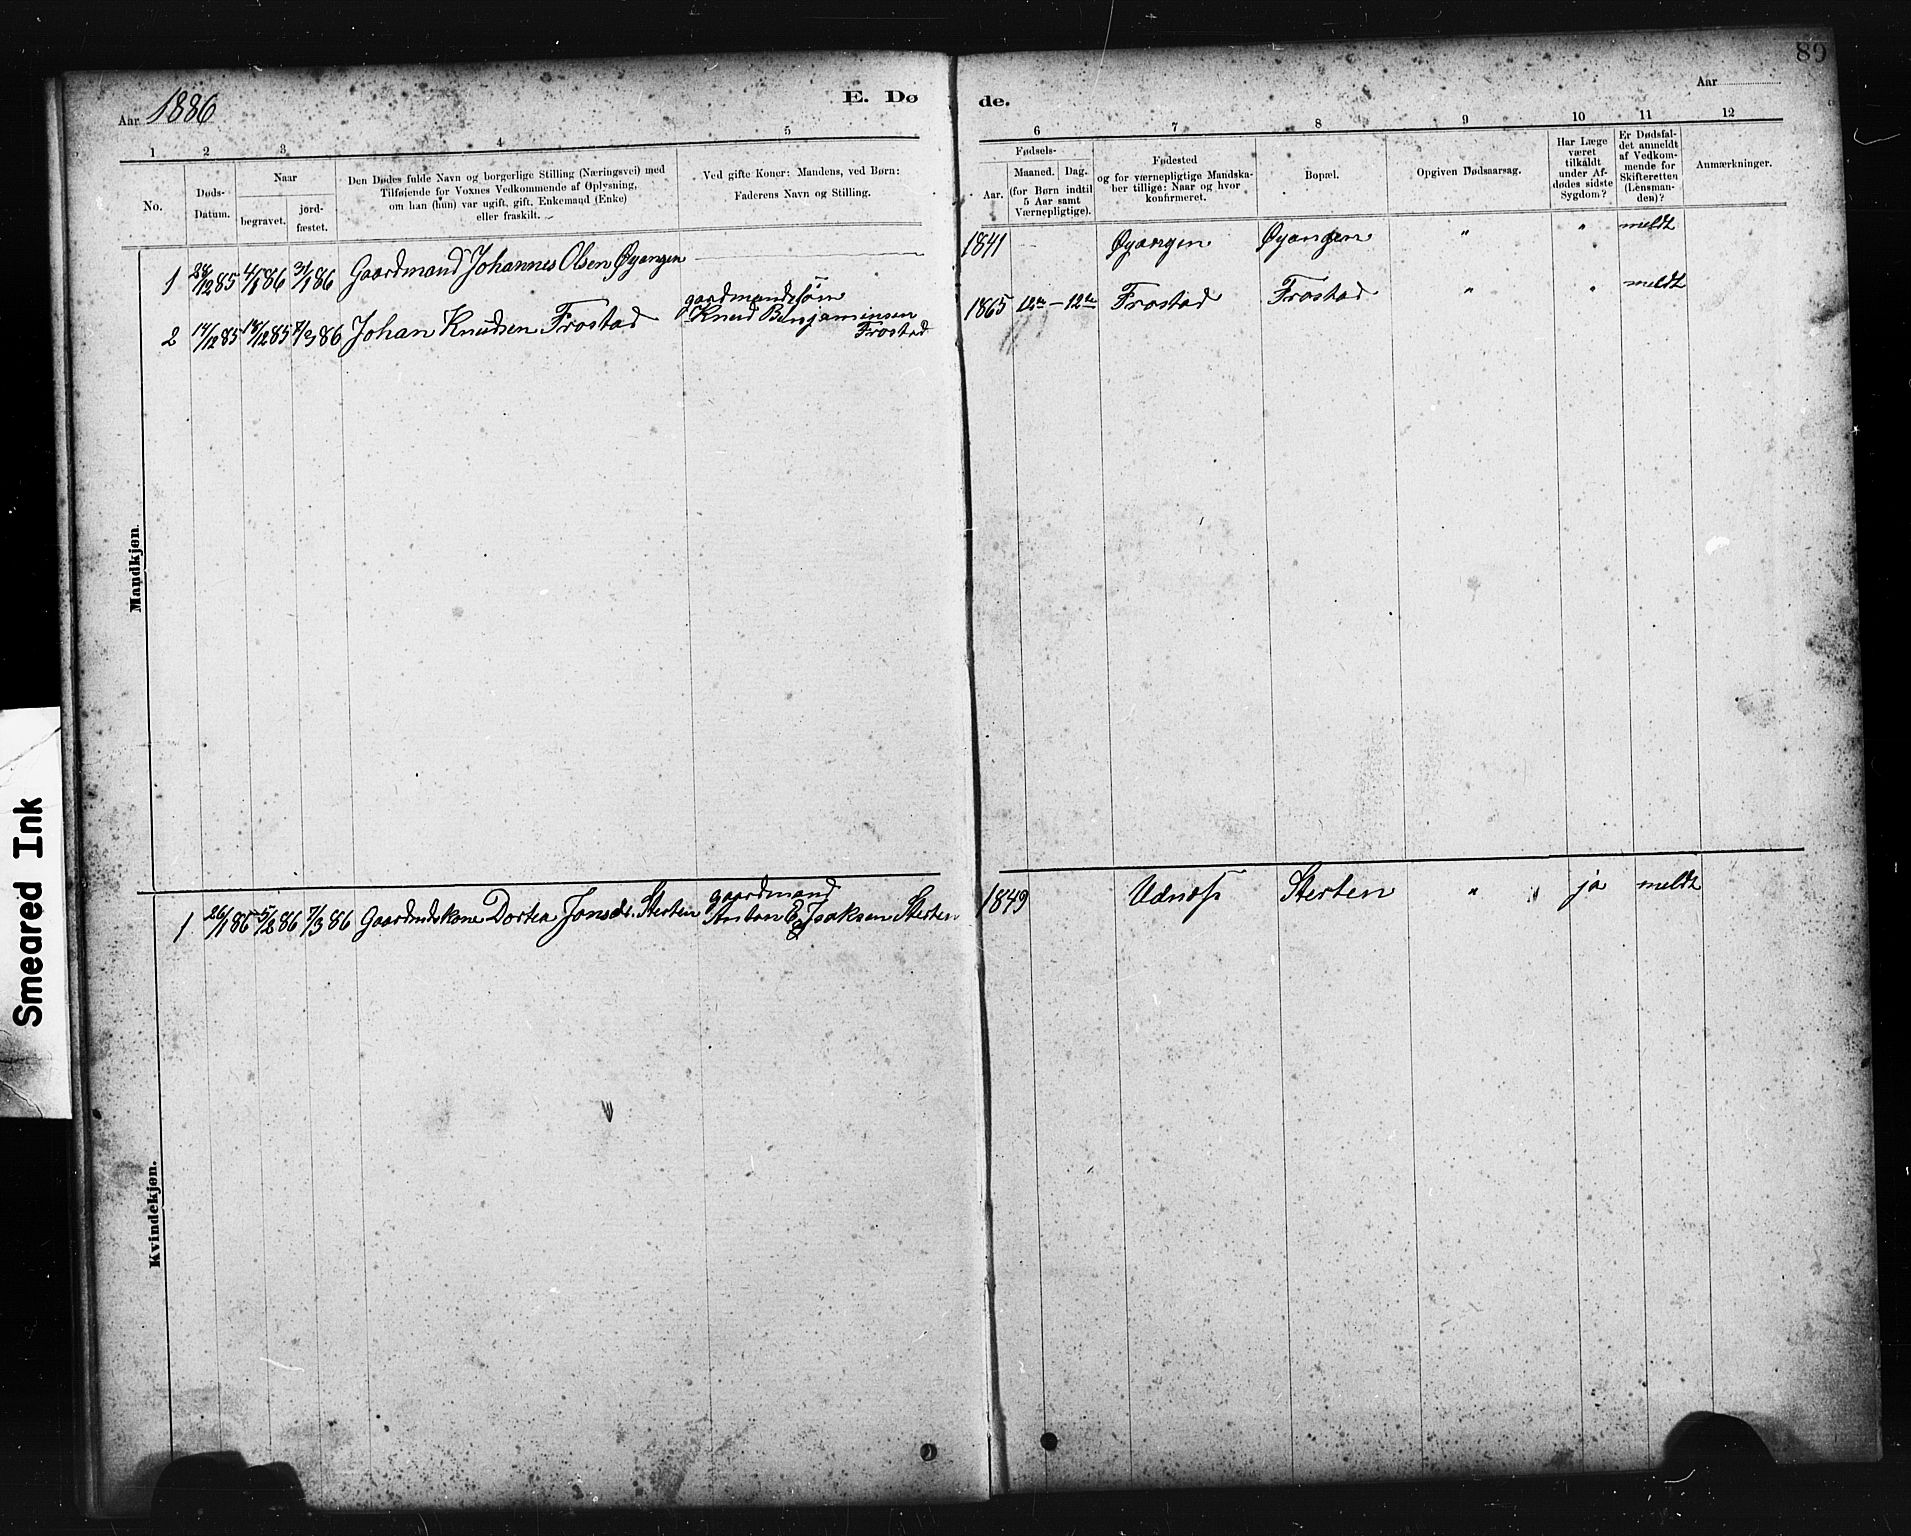 89
Aar 1886
E. Dø
de.
Aar
1 2 3 4 5
6 7 8 9 10 11 12
No.
Døds-
Datum.
Naar
begravet.
jord-
fæstet.
Den Dødes fulde Navn og borgerlige Stilling (Næringsvei) med
Tilføiende for Voxnes Vedkommende af Oplysning,
om han (hun) var ugift, gift, Enkemand (Enke)
eller fraskilt.
Ved gifte Koner: Mandens, ved Børn:
Faderens Navn og Stilling.
Fødsels-
Aar.
Maaned. Dag.
(for Børn indtil
5 Aar samt
Værnepligtige).
Fødested
og for værnepligtige Mandska-
ber tillige: Naar og hvor
konfirmeret.
Bopæl.
Opgiven Dødsaarsag.
Har Læge
været
tilkaldt
under Af-
dødes sidste
Sygdom?
Er Dødsfal-
det anmeldt
af Vedkom-
mende for
Skifteretten
(Lensman-
den)?
Anmærkninger.
Mandkjøn.
1 28/12 85 4/1 86 31/1 86 Gaardmand Johannes Olsen Øyangen 1841 Øyangen Øyangen " " meldt
gaardmandssøn
2 14/12 85 18/12 85 7/3 86 Johan Knudsen Frostad Knud Benjaminsen 1865 Frostad Frostad " " meldt
Frostad
Kvindekjøn.
gaardmand
1 26/1 86 5/2 86 7/3 86 Gaardmdskone Dortea Jonsdr. Sterten Anton E Isaksen Sterten 1849 Udnæs Sterten " ja meldt
Smeared Ink